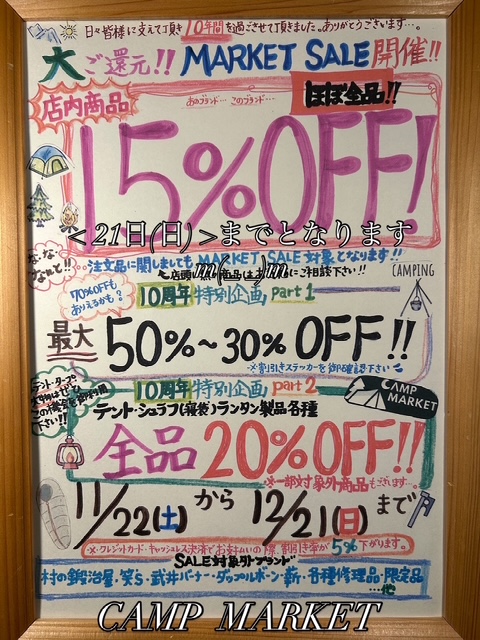 日々皆様に支えて頂き10年間を過ごさせて頂きました。ありがとうございます…。
大ご還元!! MARKET SALE開催!!
店内商品
あのブランド… このブランド…
ほぼ全品!!
15%OFF!
<21日(日)>までとなります
m(__)m
なな、なんと!!
注文品に関しましても MARKET SALE 対象となります!!
ご相談下さい!!
CAMPING
70%OFFもありえるかも?
10周年 特別企画 part 1
最大 50%~30% OFF!!
※割引きステッカーを御確認下さい
10周年 特別企画 part 2
CAMP MARKET
テント・シュラフ(寝袋)ランタン製品各種
全品 20%OFF!!
※一部対象外商品もございます…。
11/22(土)から12/21(日)まで
※クレジットカード・キャッシュレス決済でお支払いの際、割引き率が5%下がります。
SALE対象外ブランド
村の鍛冶屋・笑's・武井バーナー・ダッコルボーン・薪・各種修理品・限定品
…他
CAMP MARKET